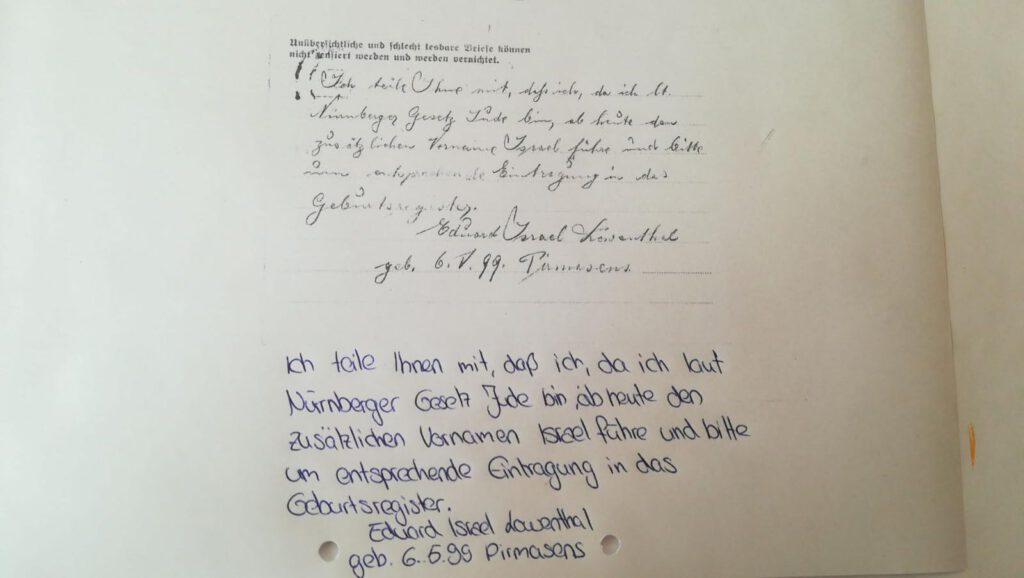 Unübersichtliche und schlecht lesbare Briefe können
nicht zensiert werden und werden vernichtet.
Ich teile Ihne mit, daß ich, da ich lt.
Nürnberger Gesetz Jude bin, ab heute den
zusätzlichen Vorname Israel führe und bitte
um entsprechende Eintragung in das
Geburtsregister.
Eduard Israel Löwenthal
geb. 6. V. 99. Pirmasens
Ich teile Ihnen mit, daß ich, da ich laut
Nürnberger Gesetz Jude bin, ab heute den
zusätzlichen Vornamen Israel führe und bitte
um entsprechende Eintragung in das
Geburtsregister.
Eduard Israel Lowenthal
geb. 6.5.99 Pirmasens